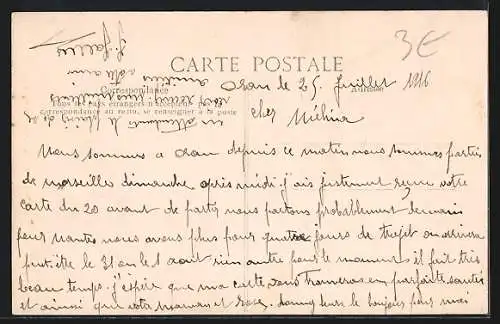 3€
CARTE POSTALE
Correspondance
Tous les pays étrangers n'acceptent pas la
correspondance au recto, se renseigner à la poste
Oran le 25 Juillet 1916
cher
Nous sommes a Oran depuis ce matin nous sommes partis
de marseilles dimanche après midi j'ais justement reçue votre
carte du 20 avant de partir nous partons probablement demain
pour nous avons plus pour quatre jours de trajet on arrivera
peut être le 31 ou le 1 aout rien autre pour le moment il fait très
beau temps. j'espère que ma carte vous trouveras en parfaite santée
et ainsi que votre maman et leurs le bonjour pour moi
en attendant le plaisir de
vous
amitiées
votre ami